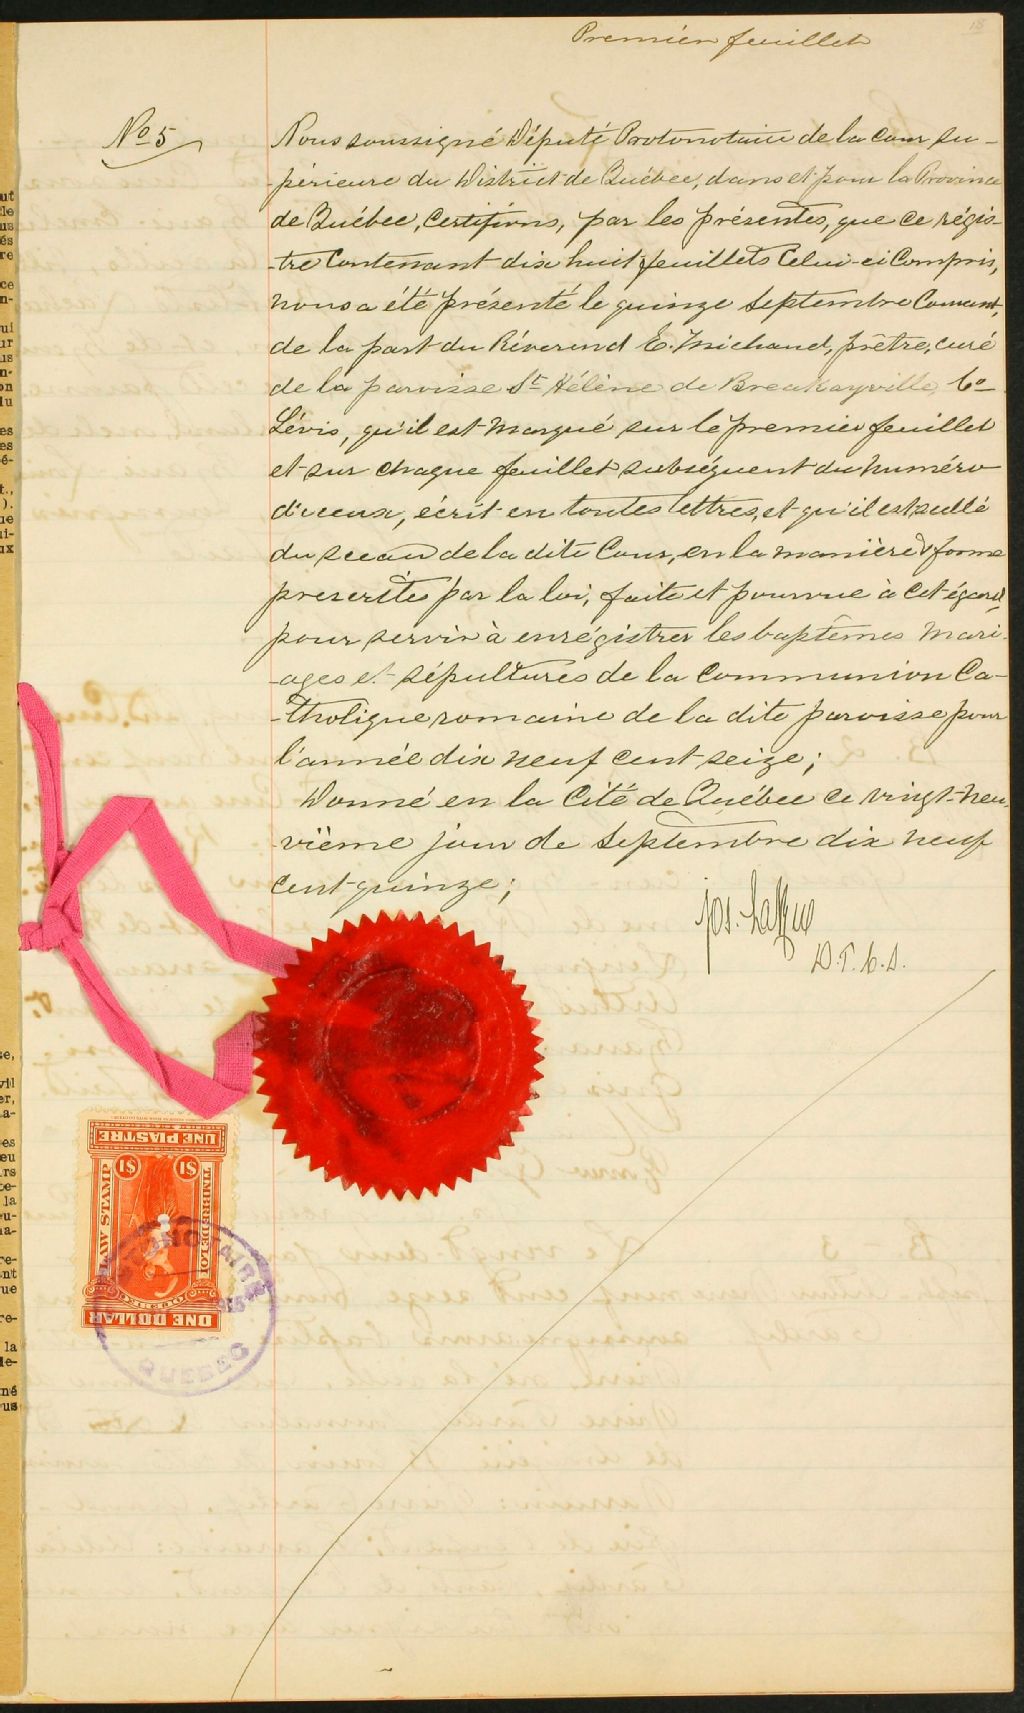 Premier feuillet
18
No 5
Nous soussigné Député Protonotaire de la cour su-
-périeure du District de Québec, dans et pour la Province
de Québec, Certifions, par les présentes, que ce régis-
-tre Contenant dix huit feuillets Celui-ci Compris,
nous a été présenté le quinze Septembre Courant,
de la part du Révérend E. Michaud, prêtre, curé
de la paroisse St Hélène de Breakeyville, Co
Lévis, qu'il est marqué sur le premier feuillet
et sur chaque feuillet subséquent du numéro
d'iceux, écrit en toutes lettres, et qu'il est scellé
du sceau de la dite Cour, en la manière & forme
prescrites par la loi, faite et pourvue à cet égard,
pour servir à enrégistrer les baptêmes mari-
-ages et sépultures de la Communion Ca-
-tholique romaine de la dite paroisse pour
l'année dix neuf cent seize;
Donné en la Cité de Québec ce vingt-neu-
-vième jour de Septembre dix neuf
cent quinze;
Jos.
D.P.C.S.
UNE PIASTRE
$1 $1
LAW STAMP
TIMBRE DE LOI
QUEBEC
ONE DOLLAR
QUEBEC